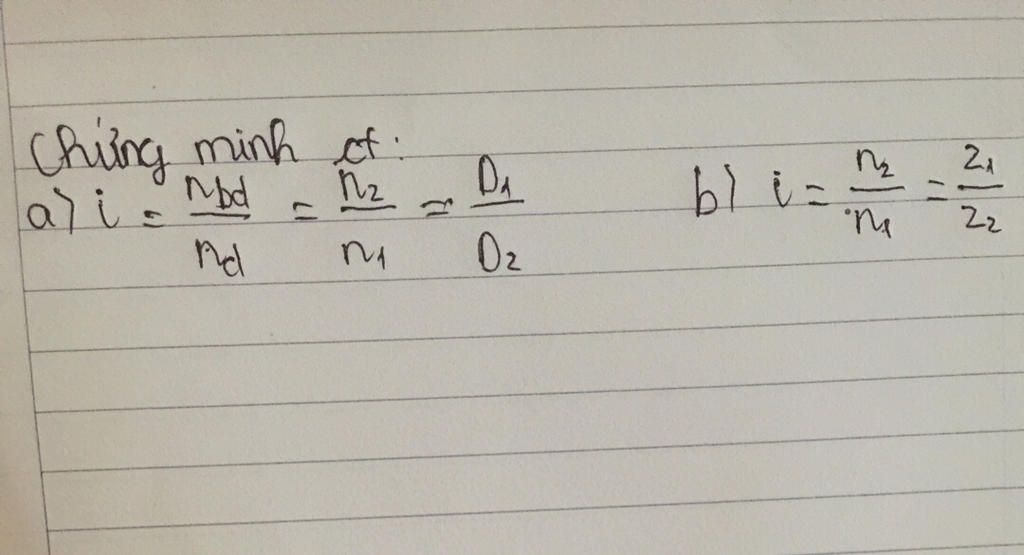 Chứng minh ct:
a) i = nbd/nd = n2/n1 = D1/D2
b) i = n2/n1 = Z1/Z2